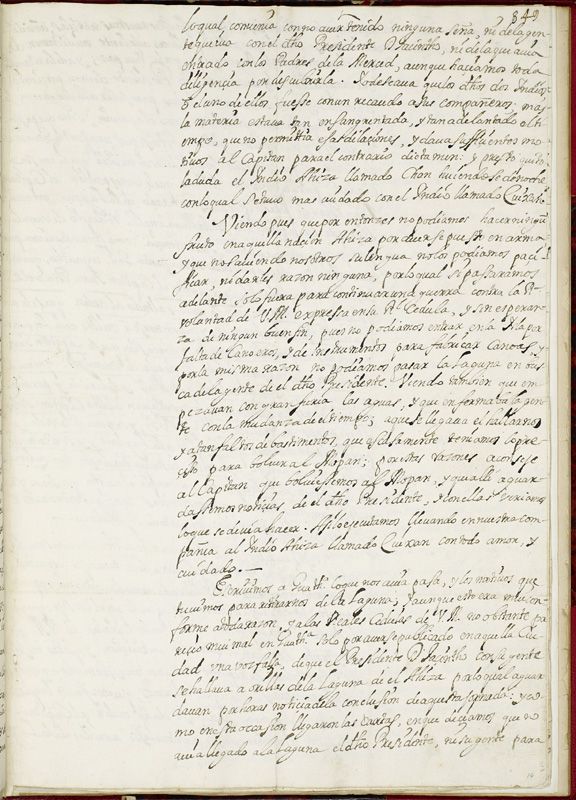 849
lo qual comunia con no auer tenido ninguna seña, ni de la gen-
te que iva con el dho Presidente D Jacinto, ni de la que auia
entrado con los Padres de la Merced, aunque haciamos toda
diligencia por descubrirla. Yo deseaua q los dhos dos Indios
ò el uno de ellos fuesse con un recaudo a sus compañeros: mas
la materia estava tan ensangrentada, y tan adelantado el ti-
empo, que no permittia esas dilaciones, y dava sufficientes mo-
tiuos al Capitan para el contrario dictamen: y presto quitò
la duda el Indio Ahiza llamado Chan huiendose de noche
con lo qual se tuvo mas cuidado con el Indio llamado Cuixan.
Viendo pues que por entonzes no podiamos hacer ningun
fruto en aquella nacion Ahiza por auerse puesto en arma
y que no sauiendo nosotros su lengua no los podiamos paci-
ficar, ni darles razon ninguna, por lo qual si passaramos
adelante solo fuera para continuar una guerra contra la Rl
voluntad de V.M. expressa en su Rl Cedula, y sin esperan-
za de ningun buen fin, pues no podiamos entrar en la Isla por
falta de Canoeros, y de instrumentos para fabricar canoas, y
por la misma razon no podiamos passar la Laguna en bus-
ca de la gente de el dho Presidente. Viendo tambien que em-
pezavan con gran furia las aguas, y que enfermaba la gen-
te con la mudanza de el tiempo; a que se llegaua el hallarnos
ya tan faltos de bastimentos, que escasamente teniamos lo pre-
ciso para boluer al Mopan; por estas razones aconsejè
al Capitan que boluiessemos al Mopan, y que alli aguar-
dassemos noticias, de el dho Presidente, y con ellas veriamos
lo que se devia hacer. Assi lo executamos llevando en nuestra com-
pañia al Indio Ahiza llamado Cuixan con todo amor, y
cuidado.
Escriuimos a Guatha lo que nos auia passado, y los motiuos que
tuuimos para retirarnos de la Laguna; y aunque esto era mui con-
forme a toda razon, y a las Reales Cedulas de V.M. no obstante pa-
reciò mui mal en Guatha solo por auerse publicado en aquella Ciu-
dad una voz falsa, de que el Presidente D Jacintho con su gente
se hallaua a orillas de la Laguna de el Ahiza por lo qual aguar-
davan por horas noticia de la conclusion de aquesta jornada: y co-
mo en esta occasion llegaron las cartas, en que deciamos que no
auia llegado a la Laguna el dho Presidente, ni su gente para